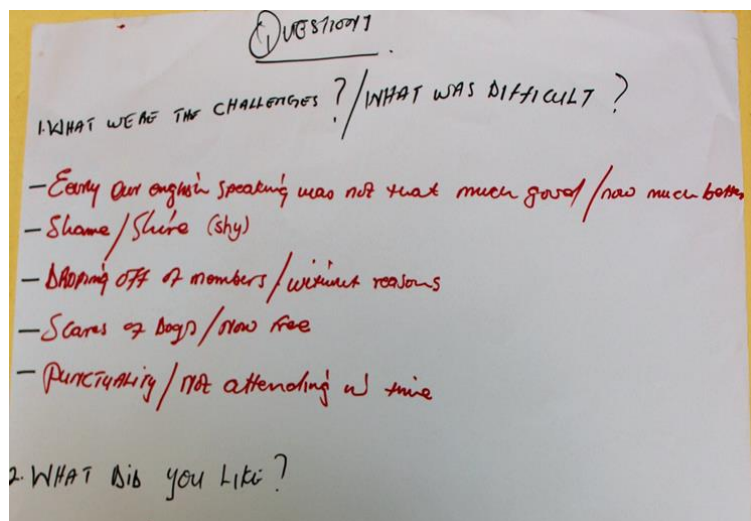 QUESTIONS
1. WHAT WERE THE CHALLENGES? / WHAT WAS DIFFICULT?
- Early our english speaking was not that much good / now much better
- Shame / Shire (shy)
- DROPing OFF of members / without reasons
- Scares of Dogs / Now free
- PUNCTUALITY / not attending in time
2. WHAT DID YOU LIKE?